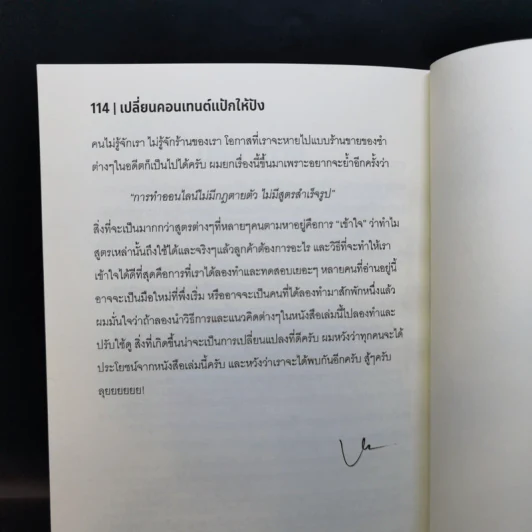 114 | เปลี่ยนคอนเทนต์แป้กให้ปัง
คนไม่รู้จักเรา ไม่รู้จักร้านของเรา โอกาสที่เราจะหายไปแบบร้านขายของชำ
ต่างๆในอดีตก็เป็นไปได้ครับ ผมยกเรื่องนี้ขึ้นมาเพราะอยากจะย้ำอีกครั้งว่า
“การทำออนไลน์ไม่มีกฎตายตัว ไม่มีสูตรสำเร็จรูป”
สิ่งที่จะเป็นมากกว่าสูตรต่างๆที่หลายๆคนตามหาอยู่คือการ “เข้าใจ” ว่าทำไม
สูตรเหล่านั้นถึงใช้ได้และจริงๆแล้วลูกค้าต้องการอะไร และวิธีที่จะทำให้เรา
เข้าใจได้ดีที่สุดคือการที่เราได้ลองทำและทดสอบเยอะๆ หลายคนที่อ่านอยู่นี้
อาจจะเป็นมือใหม่ที่พึ่งเริ่ม หรืออาจจะเป็นคนที่ได้ลองทำมาสักพักหนึ่งแล้ว
ผมมั่นใจว่าถ้าลองนำวิธีการและแนวคิดต่างๆในหนังสือเล่มนี้ไปลองทำและ
ปรับใช้ดู สิ่งที่เกิดขึ้นน่าจะเป็นการเปลี่ยนแปลงที่ดีครับ ผมหวังว่าทุกคนจะได้
ประโยชน์จากหนังสือเล่มนี้ครับ และหวังว่าเราจะได้พบกันอีกครับ สู้ๆครับ
ลุยยยยยย!